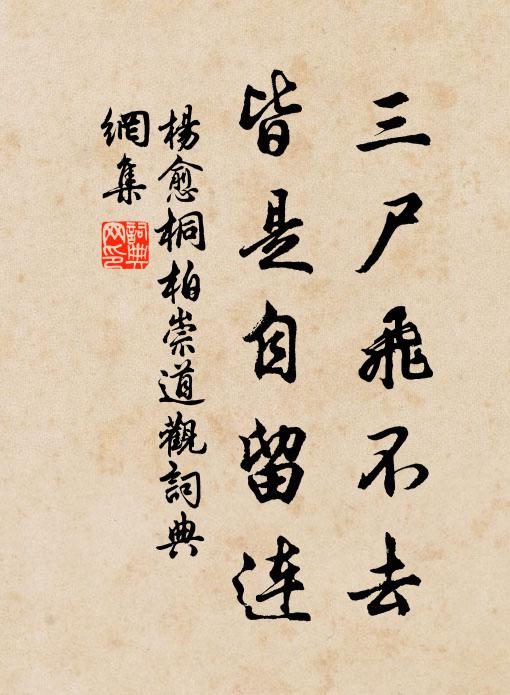 三尸飛不去
皆是自留连
楊愈桐柏崇道觀詞典
網集
詞典
网印